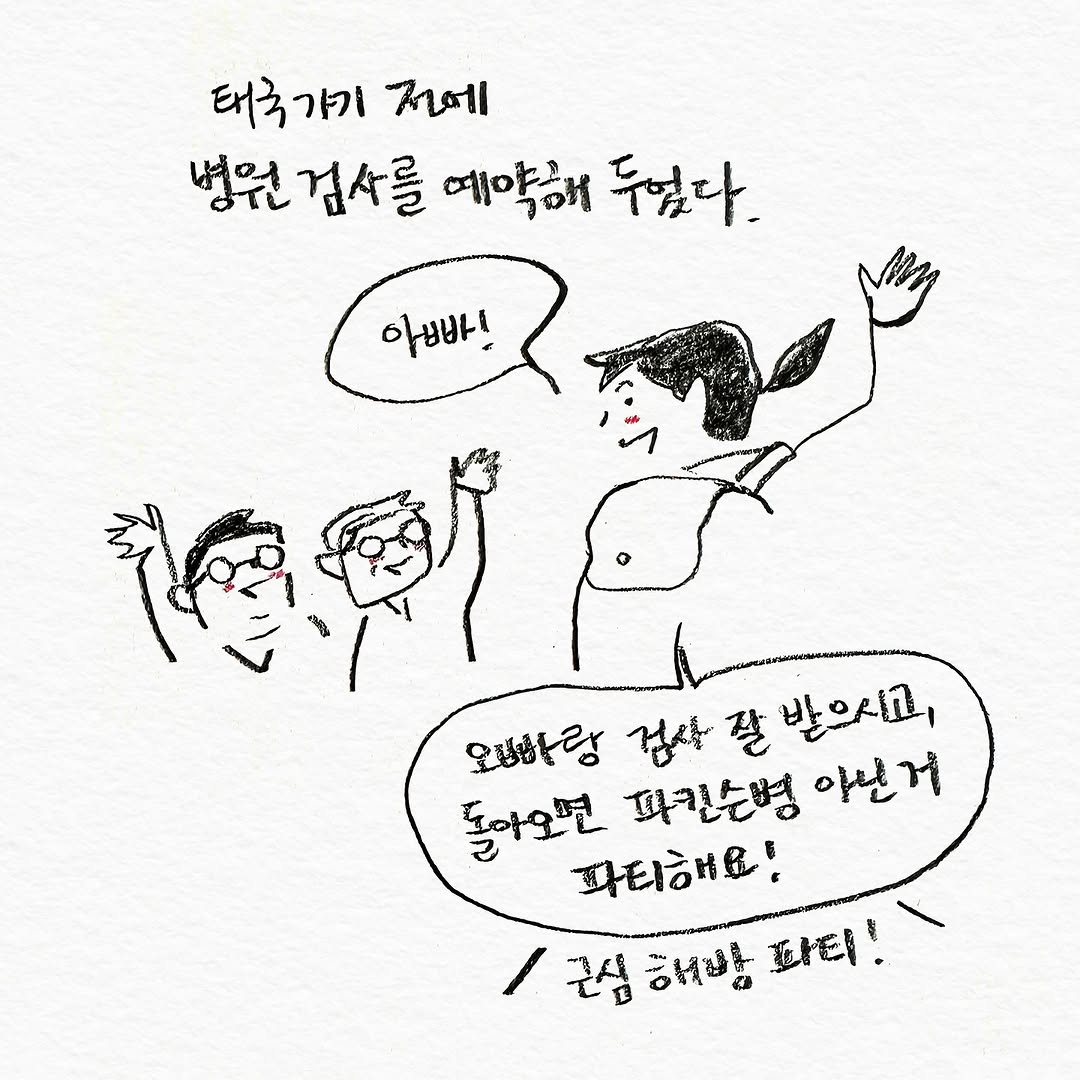 태국가기 전에
병원 검사를 예약해 두었다.
아빠!
오빠랑 검사 잘 받으시고,
돌아오면 파킨슨병 아닌 거
파티해요!
근심 해방 파티!